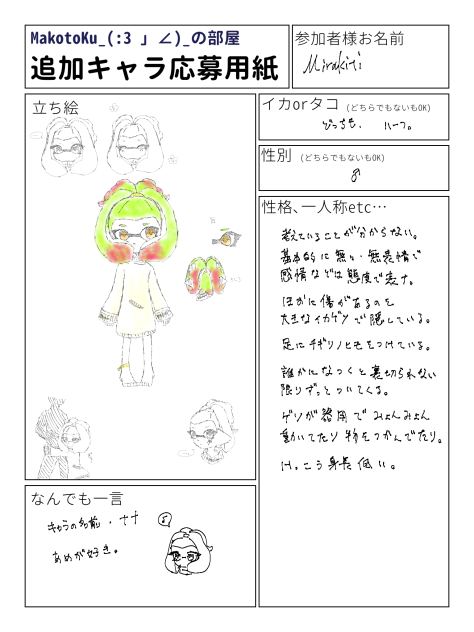 MakotoKu_(:3 」∠)_の部屋
追加キャラ応募用紙
参加者様お名前
Mirakiti
立ち絵
イカorタコ (どちらでもないもOK)
どっちも、ハーフ。
性別 (どちらでもないもOK)
♂
性格、一人称etc…
考えていることが分からない。
基本的に無い、無表情で
感情などは態度で表す。
ほかに傷があるのを
大きなイカゲソで隠している。
足にチギリノヒモをつけている。
誰かになつくと裏切られない
限りずっとついてくる。
ゲソが器用でみょんみょん
動いてたり 物をつかんでたり。
けっこう身長低い。
なんでも一言
キャラの名前・ナナ
あめが好き。